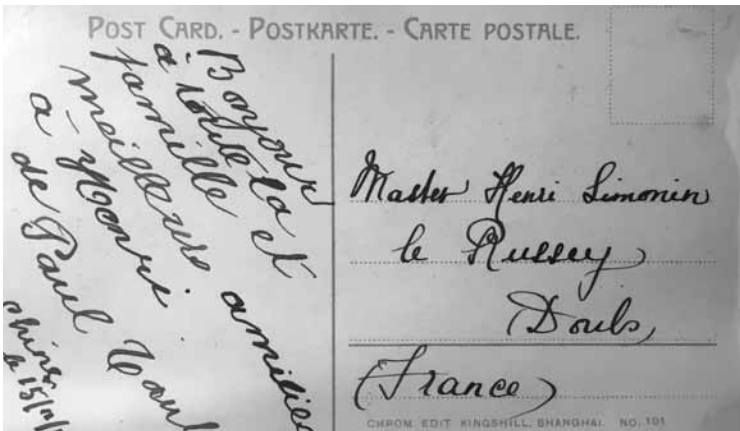 POST CARD. - POSTKARTE. - CARTE POSTALE.
Bonjour
à toute la
famille et
meilleures amitiés
à Henri
de Paul
le 15
Master Henri Limonin
le Russey
Doubs
(France)
CHROM. EDIT KINGSHILL, SHANGHAI. NO. 101